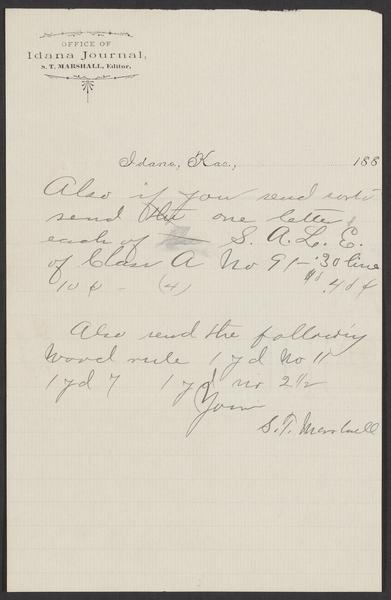 OFFICE OF
Idana Journal,
S. T. MARSHALL, Editor,
Idana, Kas., 188
Also if you send
send one letter
each of S. A. L. E.
of Class A No 91 - 30 line
10¢ - (4) 40¢
Also send the following
Wood rule 1 yd No 11
1 yd 7 1 yd no 2 1/2
Yours
S. T. Marshall